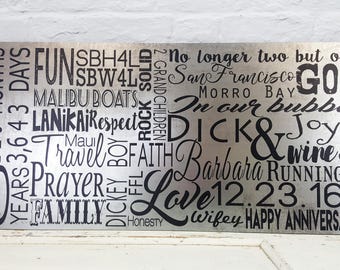 MONTHS
3 DAYS
YEARS 3,643
FUN
SBH4L
SBW4L
MALIBU BOATS
LANiKAi Respect
Maui
Travel
Prayer
FAMILY
ROCK SOLID
2 GRAND CHILDREN
DICKEY BOY
FFL
FAITH
Honesty
No longer two but o
San Francisco
GO
MORRO BAY
In our bubb
DICK & Joy
wine
Barbara RUNNING
Love 12.23.16
Wifey HAPPY ANNIVERS